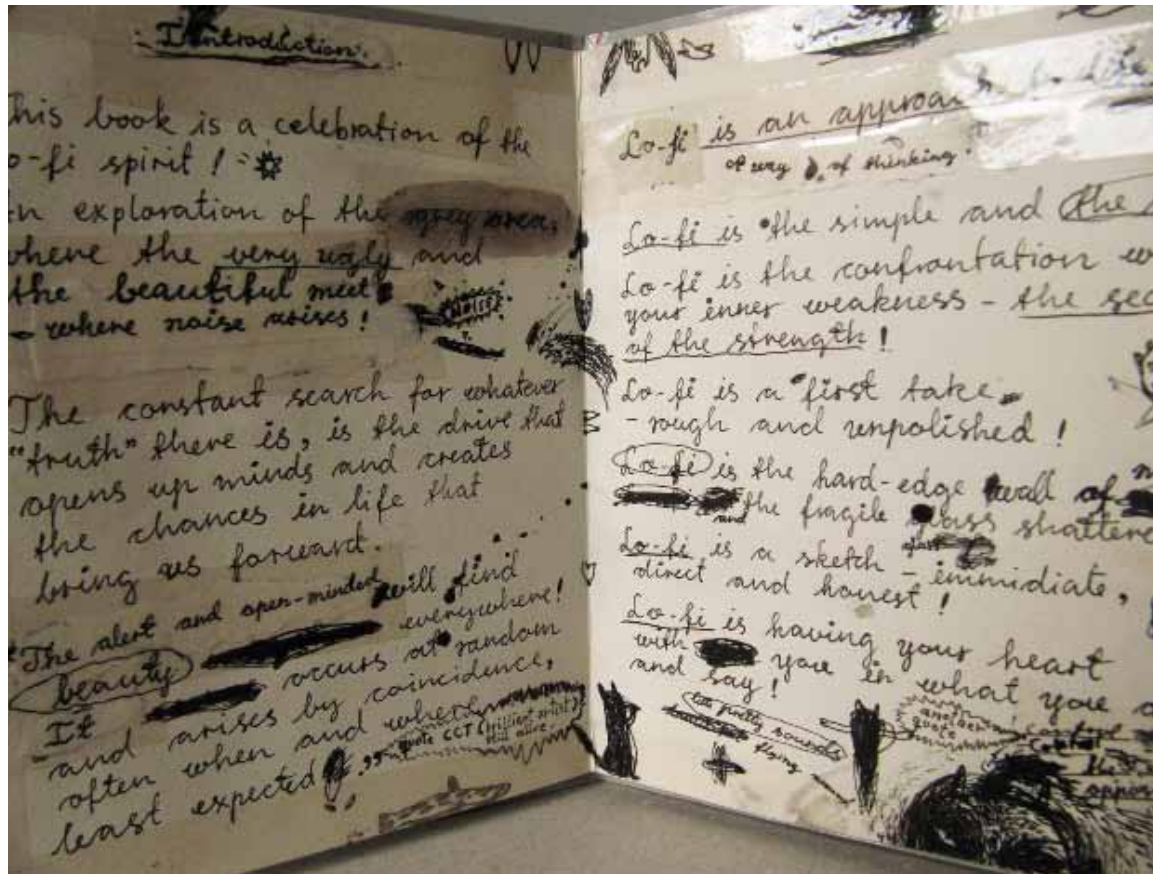 Introduction.
this book is a celebration of the
o-fi spirit!
n exploration of the grey area,
where the very ugly and
the beautiful meet
- where noise arises!
NOISE
The constant search for whatever
"truth" there is, is the drive that
opens up minds and creates
the chances in life that
bring us forward.
The alert and open-minded will find
beauty everywhere!
It occurs at random
and arises by coincidence,
often when and where
least expected."
quote CCT (brilliant artist
still alive)
Lo-fi is an approach
of way of thinking.
Lo-fi is the simple and the
Lo-fi is the confrontation w
your inner weakness - the sec
of the strength!
Lo-fi is a first take
- rough and unpolished!
Lo-fi is the hard-edge wall of
and the fragile glass shattered
Lo-fi is a sketch - immidiate,
direct and honest!
Lo-fi is having your heart
with you in what you
and say!
pretty sounds
another
quote
control